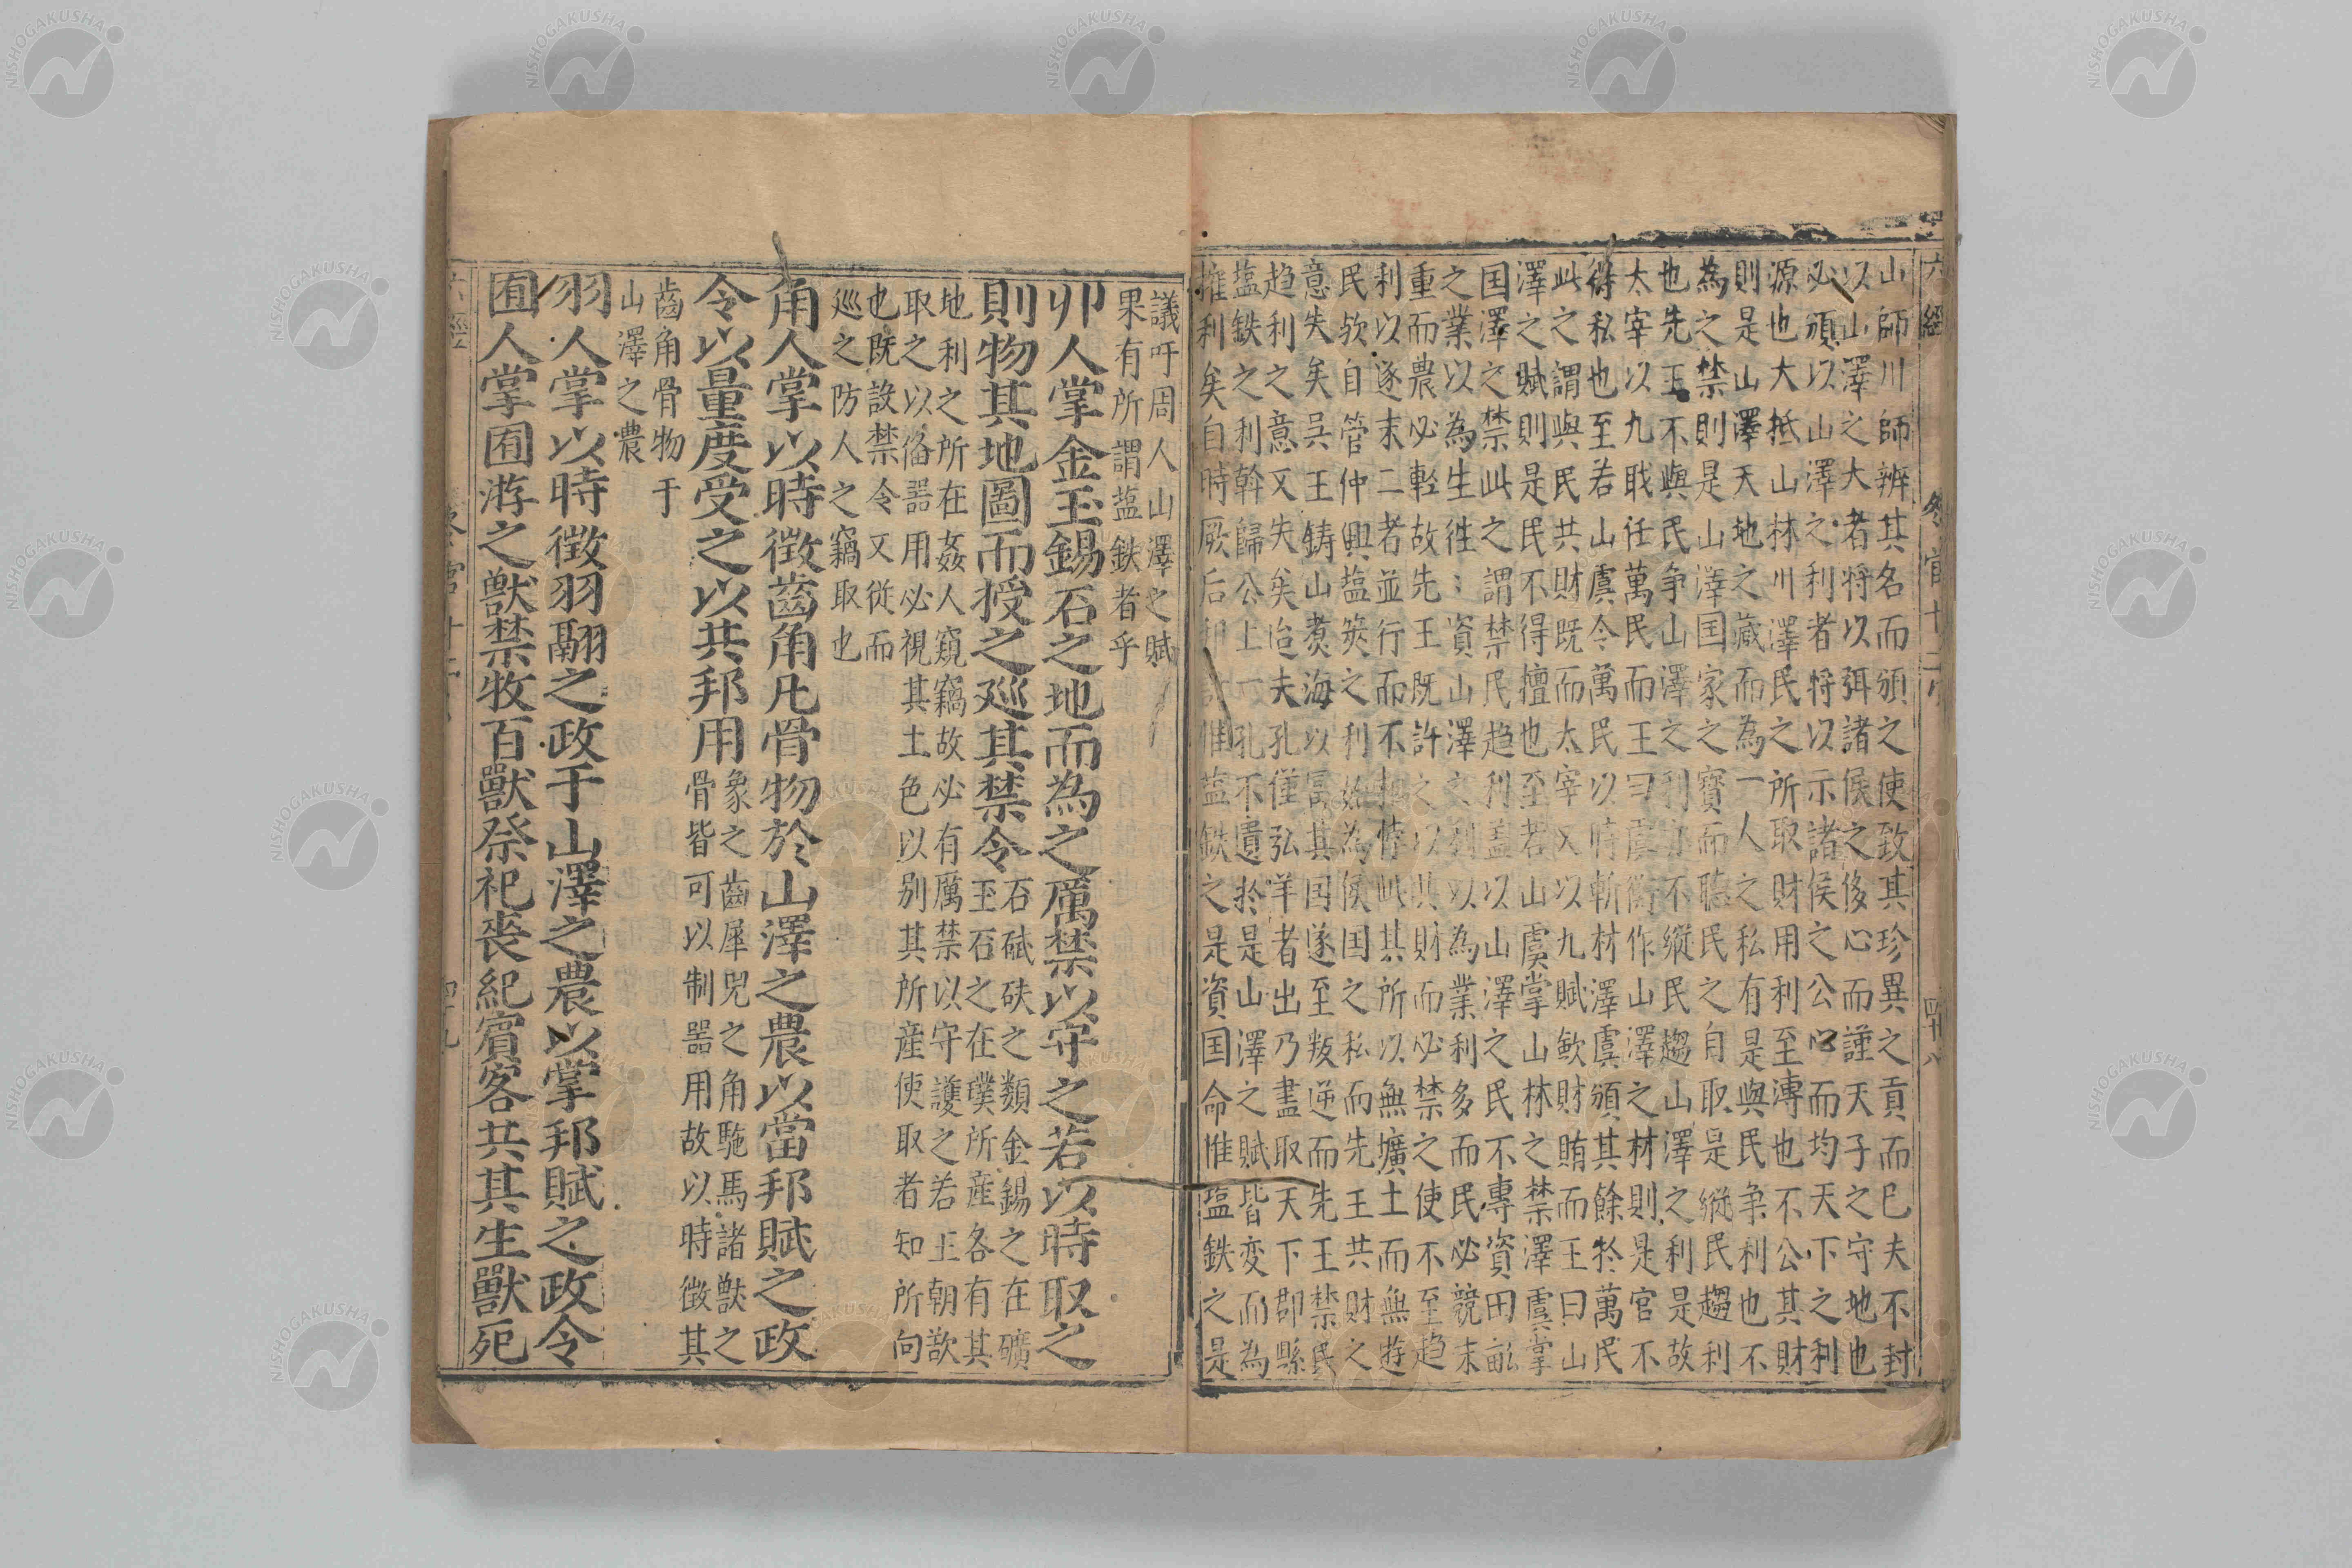 六經 冬官十二 四十八
山師川師辨其名而頒之使致其珍異之貢而已夫不封
以山澤之大者將以弭諸侯之侈心而謹天子之守地也
必頒以山澤之利者將以示諸侯之公心而均天下之利
源也大抵山林川澤民之所取財用利至溥也不公其財
則是山澤天地之藏而為一人之私有是與民争利也不
為之禁則是山澤国家之寳而聽民之自取是縱民趨利
也先王不與民争山澤之利亦不縱民趨山澤之利是故
太宰以九戝任萬民而王曰虞衡作山澤之材則是官不
得私也至若山虞令萬民以時斬材澤虞頒其餘於萬民
此之謂與民共財既而太宰又以九賦斂財賄而王曰山
澤之賦則是民不得擅也至若山虞掌山林之禁澤虞掌
国澤之禁此之謂禁民趋利盖以山澤之民不專資田畝
之業以為生徃:資山澤之利以為業利多而民必競末
重而農必輕故先王既許之以共財而必禁之使不至趋
利以逐末二者並行而不相悖此其所以無壙土而無遊
民欤自管仲興塩筴之利始為侯国之私而先王共財之
意失矣吴王鋳山煑海以富其国遂至叛逆而先王禁民
趋利之意又失矣迨夫孔僅弘羊者出乃盡取天下郡縣
塩鉄之利斡歸公上一孔不遺於是山澤之賦皆変而為
搉利矣自時厥后即計惟塩鉄之是資国命惟塩鉄之是
議吁周人山澤之賦
果有所謂塩鉄者乎
卯人掌金玉錫石之地而為之厲禁以守之若以時取之
則物其地圖而授之廵其禁令
石碔砆之類金錫之在礦
玉石之在璞所産各有其
地利之所在姦人窺竊故必有厲禁以守護之若王朝歆
取之以俻噐用必視其土色以别其所産使取者知所向
也既設禁令又従而
廵之防人之竊取也
角人掌以時徵齒角凡骨物於山澤之農以當邦賦之政
令以量度受之以共邦用
象之齒犀兕之角駞馬諸獸之
骨皆可以制噐用故以時徵其
齒角骨物于
山澤之農
羽人掌以時徵羽翮之政于山澤之農以掌邦賦之政令
囿人掌囿游之獸禁牧百獸祭祀喪紀賓客共其生獸死
六經